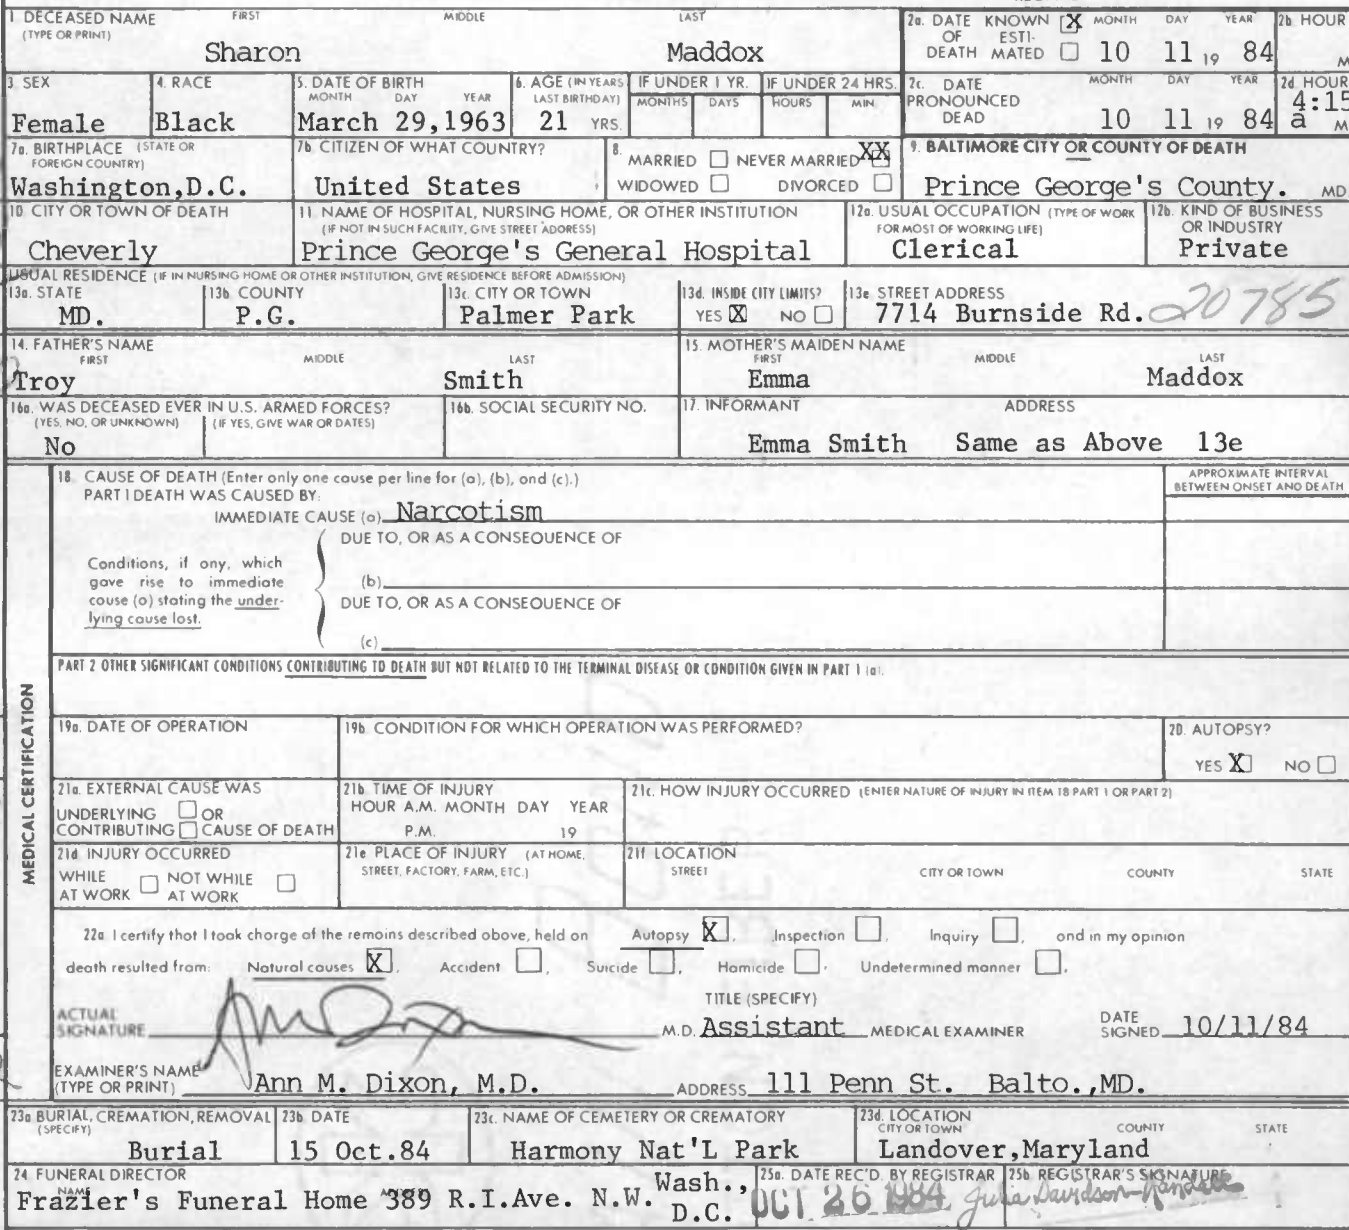 1 DECEASED NAME FIRST MIDDLE LAST
(TYPE OR PRINT)
Sharon Maddox
2a. DATE KNOWN X MONTH DAY YEAR 2b HOUR
OF ESTI-
DEATH MATED 10 11 19 84 M
3 SEX 4. RACE 5. DATE OF BIRTH 6. AGE (IN YEARS IF UNDER 1 YR. IF UNDER 24 HRS.
MONTH DAY YEAR LAST BIRTHDAY) MONTHS DAYS HOURS MIN.
Female Black March 29,1963 21 YRS.
2c. DATE MONTH DAY YEAR 2d HOUR
PRONOUNCED 4:15
DEAD 10 11 19 84 a M
7a. BIRTHPLACE (STATE OR
FOREIGN COUNTRY)
Washington,D.C.
7b CITIZEN OF WHAT COUNTRY?
United States
8. MARRIED NEVER MARRIED XX
WIDOWED DIVORCED
9. BALTIMORE CITY OR COUNTY OF DEATH
Prince George's County. MD
10 CITY OR TOWN OF DEATH
Cheverly
11 NAME OF HOSPITAL, NURSING HOME, OR OTHER INSTITUTION
(IF NOT IN SUCH FACILITY, GIVE STREET ADDRESS)
Prince George's General Hospital
12a. USUAL OCCUPATION (TYPE OF WORK
FOR MOST OF WORKING LIFE)
Clerical
12b. KIND OF BUSINESS
OR INDUSTRY
Private
USUAL RESIDENCE (IF IN NURSING HOME OR OTHER INSTITUTION, GIVE RESIDENCE BEFORE ADMISSION)
13a. STATE 13b COUNTY 13c. CITY OR TOWN 13d. INSIDE CITY LIMITS? 13e STREET ADDRESS
MD. P.G. Palmer Park YES X NO 7714 Burnside Rd. 20785
14. FATHER'S NAME
FIRST MIDDLE LAST
Troy Smith
15. MOTHER'S MAIDEN NAME
FIRST MIDDLE LAST
Emma Maddox
16a. WAS DECEASED EVER IN U.S. ARMED FORCES?
(YES, NO, OR UNKNOWN) (IF YES, GIVE WAR OR DATES)
No
16b. SOCIAL SECURITY NO.
17. INFORMANT ADDRESS
Emma Smith Same as Above 13e
MEDICAL CERTIFICATION
18 CAUSE OF DEATH (Enter only one cause per line for (a), (b), and (c).)
PART I DEATH WAS CAUSED BY:
IMMEDIATE CAUSE (a) Narcotism
APPROXIMATE INTERVAL
BETWEEN ONSET AND DEATH
DUE TO, OR AS A CONSEQUENCE OF
Conditions, if any, which
gave rise to immediate
cause (a) stating the under-
lying cause last.
(b)
DUE TO, OR AS A CONSEQUENCE OF
(c)
PART 2 OTHER SIGNIFICANT CONDITIONS CONTRIBUTING TO DEATH BUT NOT RELATED TO THE TERMINAL DISEASE OR CONDITION GIVEN IN PART 1 (a).
19a. DATE OF OPERATION 19b. CONDITION FOR WHICH OPERATION WAS PERFORMED? 20. AUTOPSY?
YES X NO
21a. EXTERNAL CAUSE WAS
UNDERLYING OR
CONTRIBUTING CAUSE OF DEATH
21b TIME OF INJURY
HOUR A.M. MONTH DAY YEAR
P.M. 19
21c. HOW INJURY OCCURRED (ENTER NATURE OF INJURY IN ITEM 18 PART 1 OR PART 2)
21d INJURY OCCURRED
WHILE NOT WHILE
AT WORK AT WORK
21e PLACE OF INJURY (AT HOME,
STREET, FACTORY, FARM, ETC.)
21f LOCATION
STREET CITY OR TOWN COUNTY STATE
22a I certify that I took charge of the remains described above, held on Autopsy X, Inspection , Inquiry , and in my opinion
death resulted from: Natural causes X, Accident , Suicide , Homicide . Undetermined manner .
ACTUAL
SIGNATURE Ann M Dixon
TITLE (SPECIFY)
M.D. Assistant MEDICAL EXAMINER
DATE
SIGNED 10/11/84
EXAMINER'S NAME
(TYPE OR PRINT) Ann M. Dixon, M.D. ADDRESS 111 Penn St. Balto.,MD.
23a BURIAL, CREMATION, REMOVAL 23b DATE 23c. NAME OF CEMETERY OR CREMATORY 23d. LOCATION
(SPECIFY) CITY OR TOWN COUNTY STATE
Burial 15 Oct.84 Harmony Nat'L Park Landover,Maryland
24 FUNERAL DIRECTOR
NAME
Frazier's Funeral Home 389 R.I.Ave. N.W. Wash.,
D.C.
25a. DATE REC'D. BY REGISTRAR
OCT 26 1984
25b REGISTRAR'S SIGNATURE
Julia Davidson-Randall